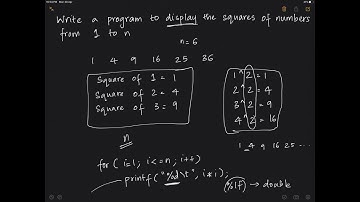 Write a program to display the squares of numbers
from 1 to n
n=6
1 4 9 16 25 36
Square of 1 = 1
Square of 2 = 4
Square of 3 = 9
1^2 = 1
2^2 = 4
3^2 = 9
4^2 = 16
n
1 4 9 16 25 ...
for ( i=1; i<=n; i++)
printf("%d\t", i*i);
(%lf) → double